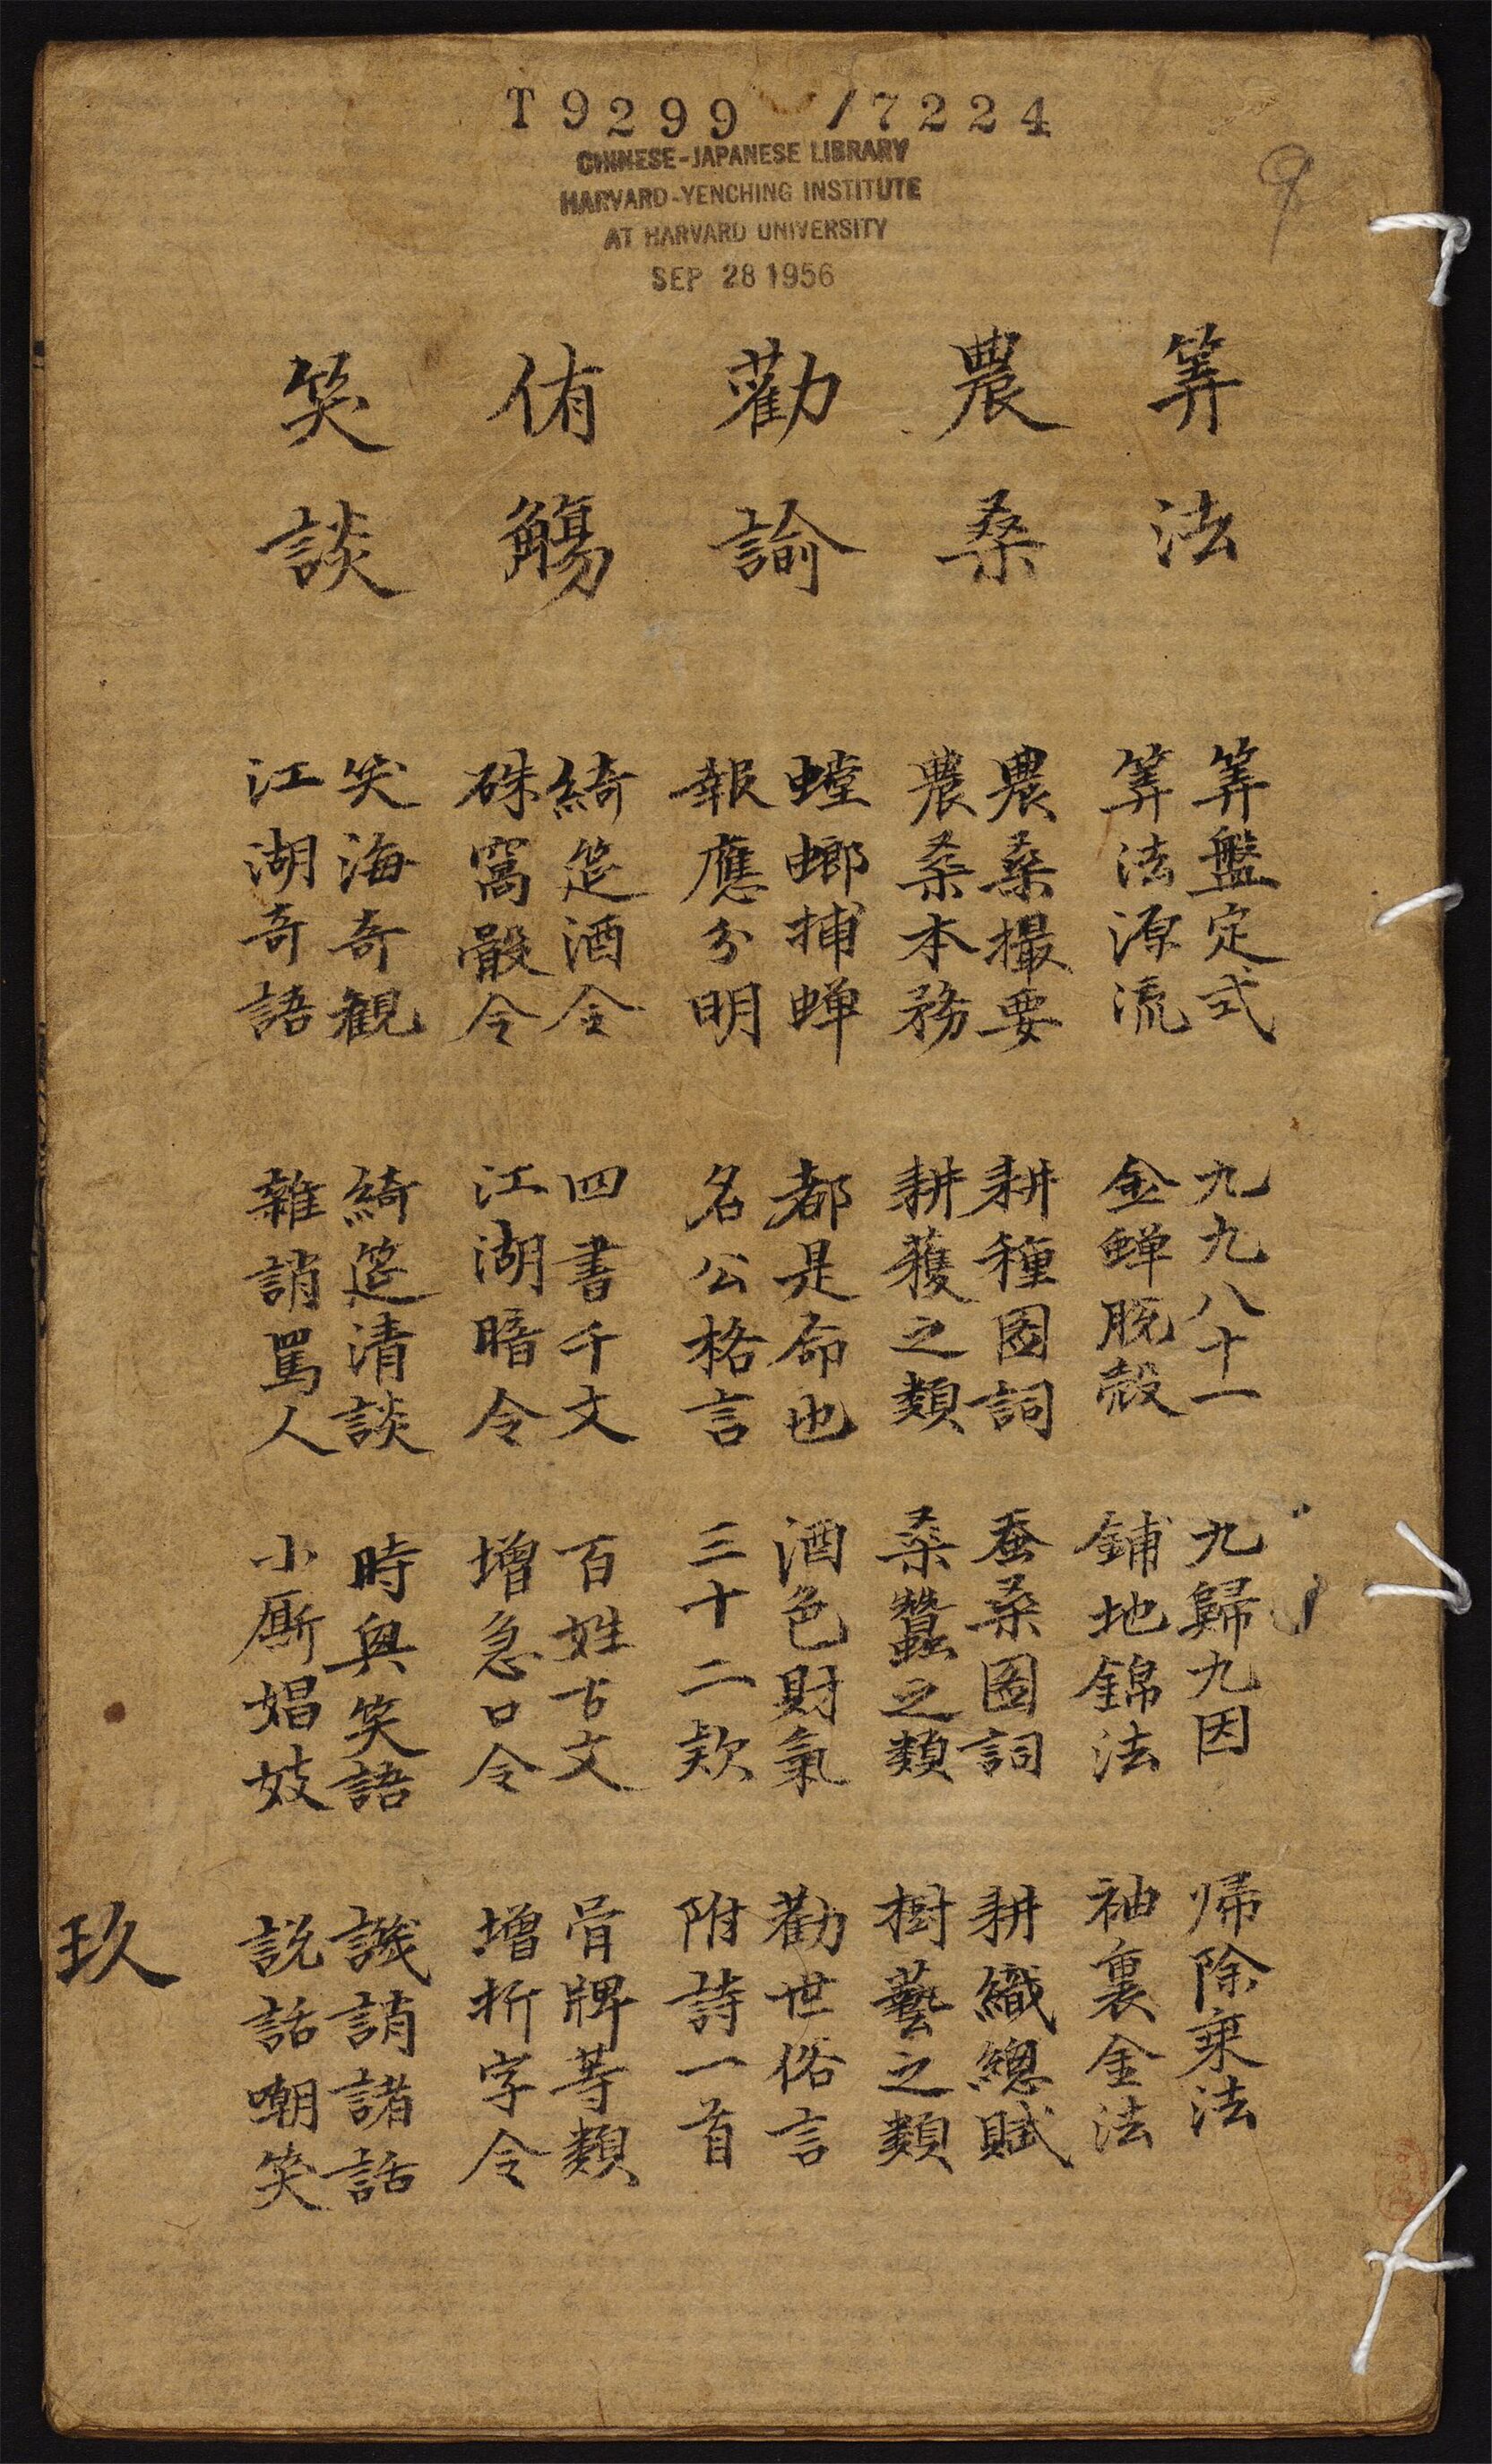 T 9299 /7224
CHINESE-JAPANESE LIBRARY
HARVARD-YENCHING INSTITUTE
AT HARVARD UNIVERSITY
SEP 28 1956
9
筭法
農桑
勸諭
侑觴
笑談
筭盤定式 九九八十一 九歸九因 帰除乘法
筭法源流 金蟬脫殼 鋪地錦法 袖裏金法
農桑撮要 耕種圖詞 蚕桑圖詞 耕織總賦
農桑本務 耕穫之類 桑蠶之類 樹藝之類
螳螂捕蝉 都是命也 酒色財氣 勸世俗言
報應分明 名公格言 三十二欵 附詩一首
綺筵酒令 四書千文 百姓古文 骨牌等類
硃窩骰令 江湖暗令 增急口令 增折字令
笑海奇観 綺筵清談 時興笑語 譏誚諸話
江湖奇語 雜誚罵人 小厮娼妓 説話嘲笑
玖